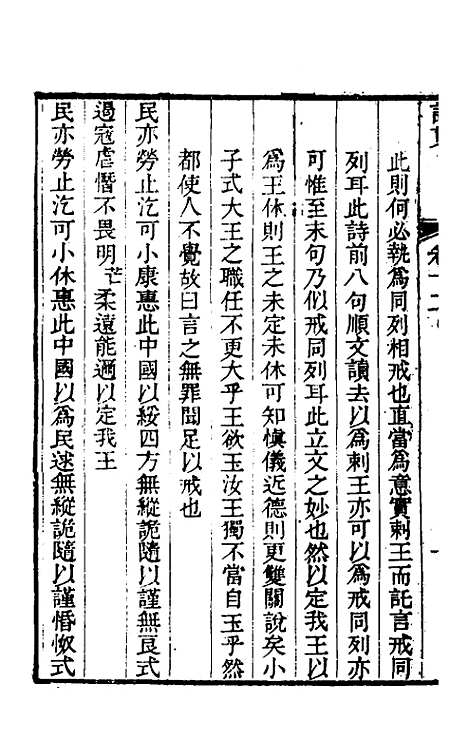 此則何必執爲同列相戒也直當爲意實刺王而託言戒同
列耳此詩前八句順文讀去以爲刺王亦可以爲戒同列亦
可惟至末句乃似戒同列耳此立文之妙也然以定我王以
爲王休則王之未定未休可知愼儀近德則更雙關說矣小
子式大王之職任不更大乎王欲玉汝王獨不當自玉乎然
都使人不覺故曰言之無罪聞足以戒也
民亦勞止汔可小康惠此中國以綏四方無縱詭隨以謹無良式
遏寇虐憯不畏明芒柔遠能邇以定我王
民亦勞止汔可小休惠此中國以爲民逑無縱詭隨以謹惛怓式